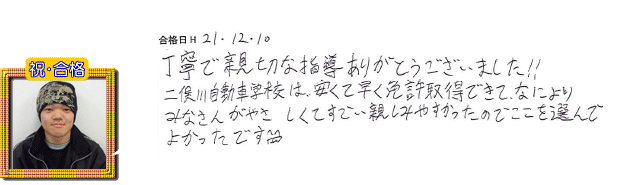 祝・合格
合格日H 21・12・10
丁寧で親切な指導ありがとうございました!!
二俣川自動車学校は、安くて早く免許取得できて、なにより
みなさんがやさしくてすごい親しみやすかったのでここを選んで
よかったです